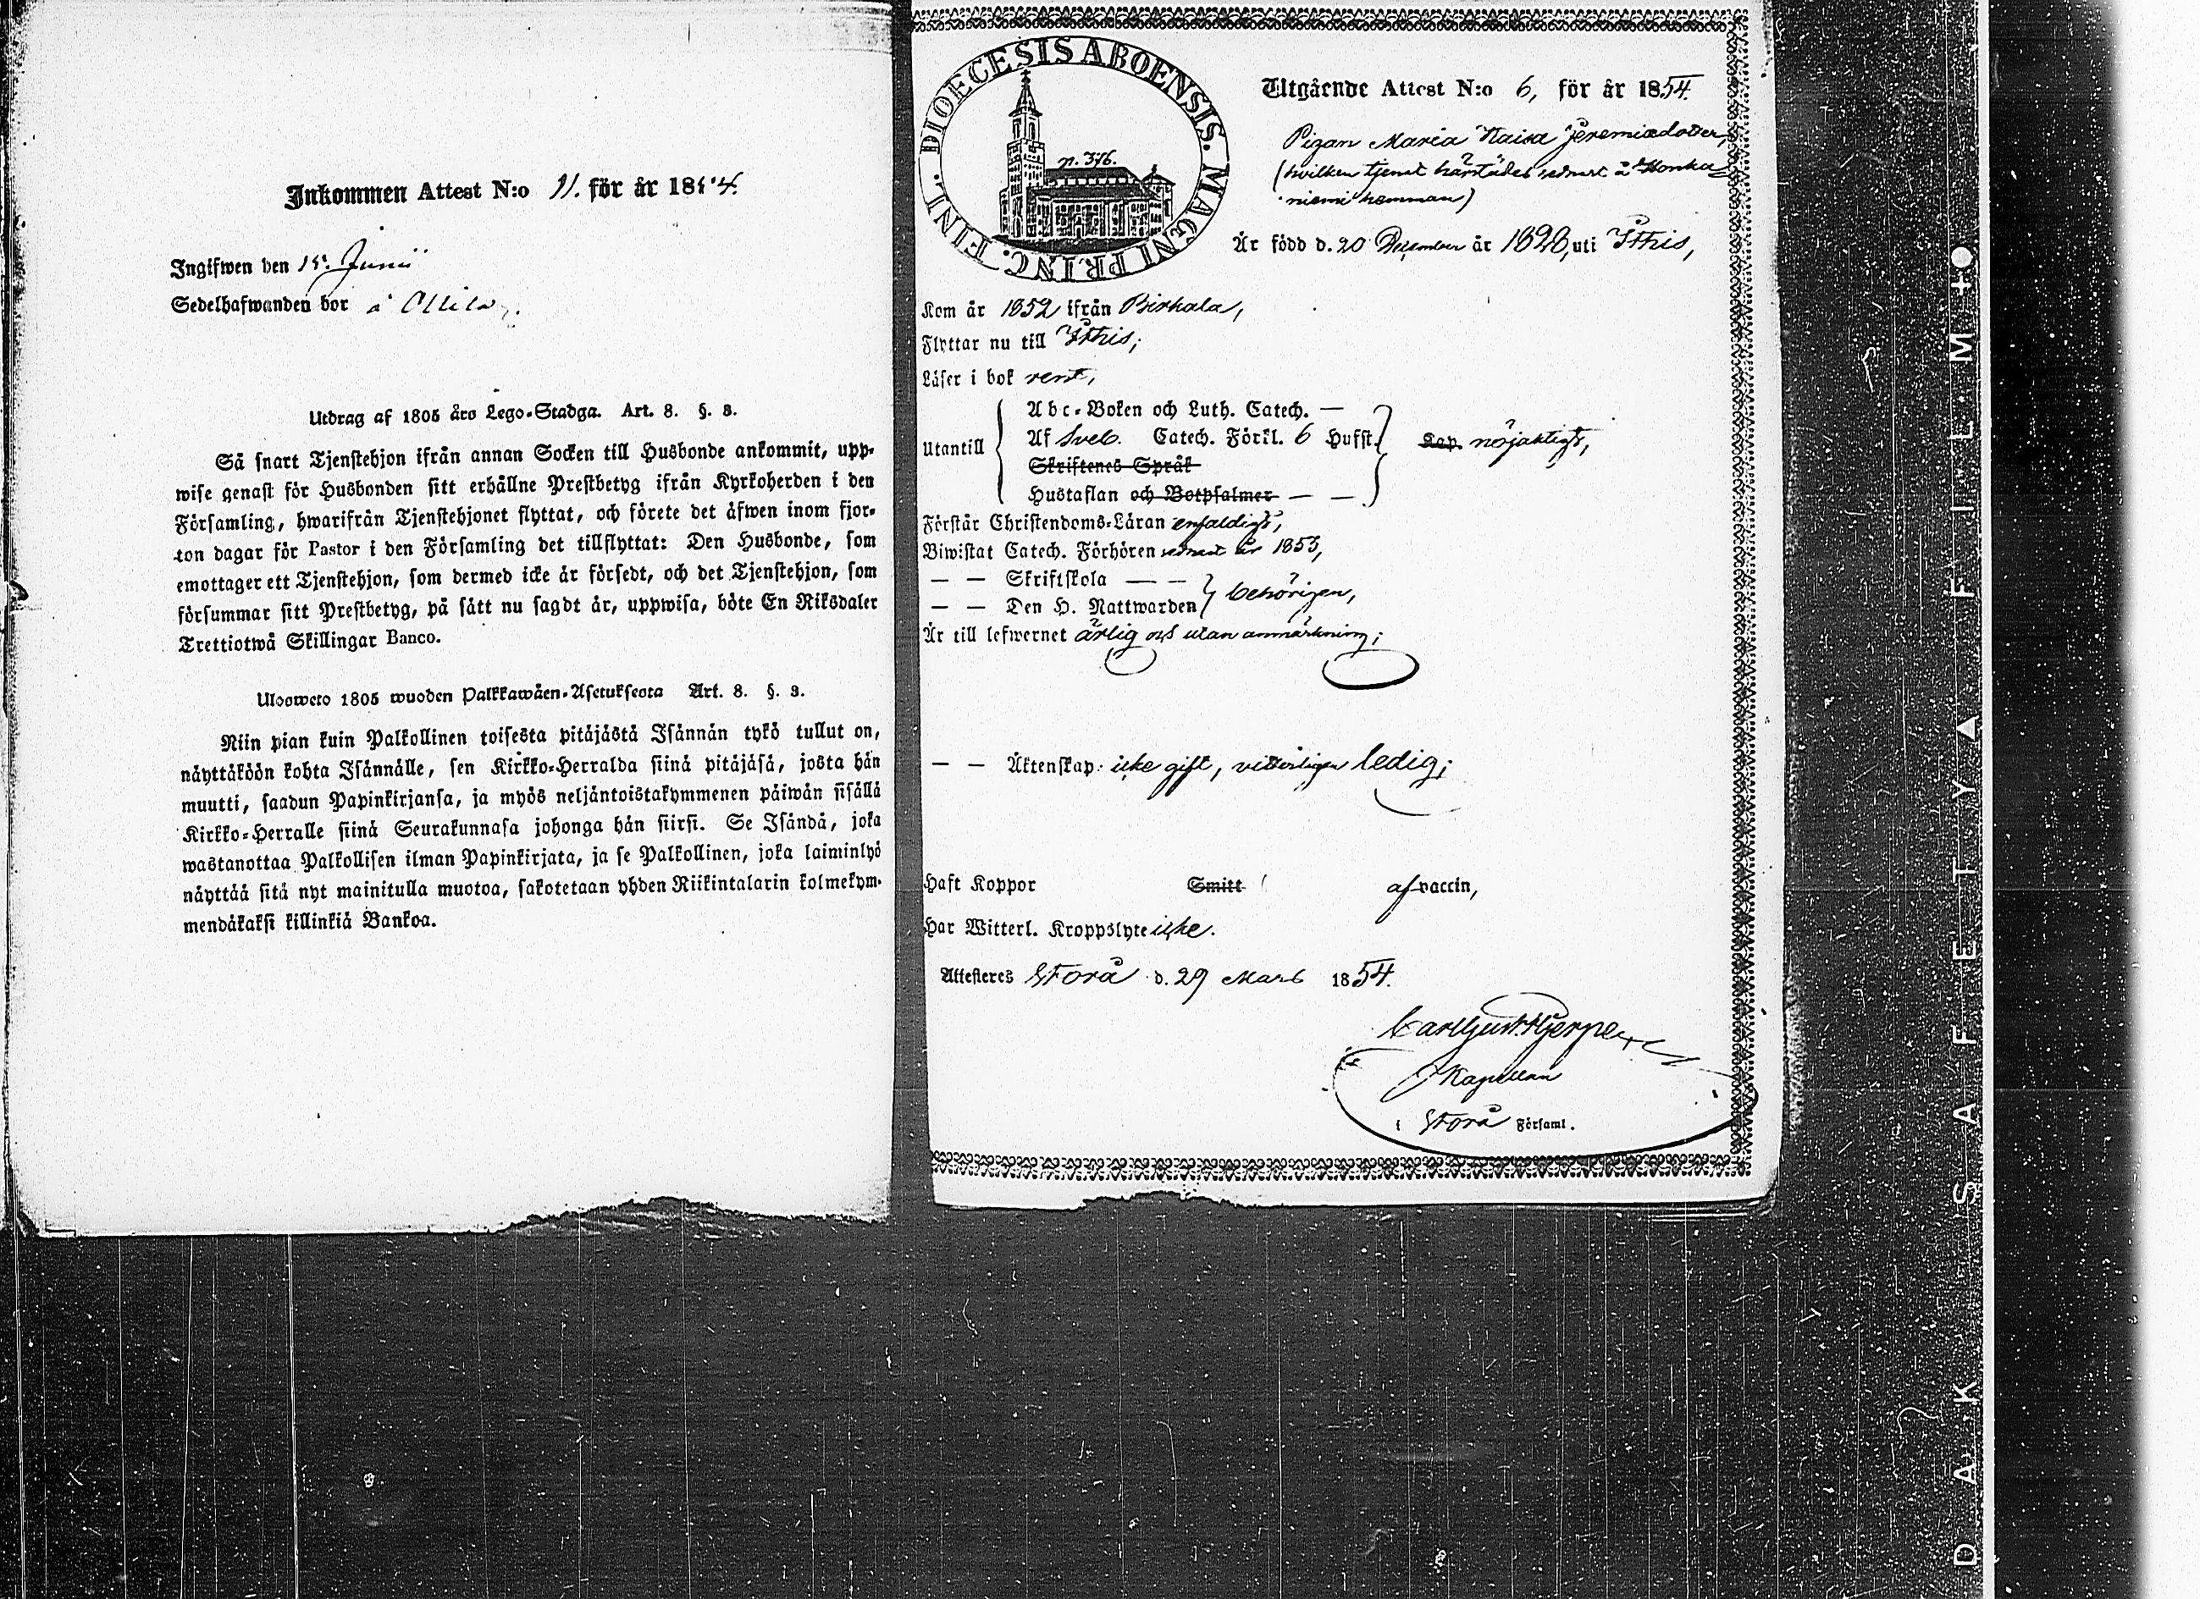 Inkommen Attest N:o 11. för år 1854.
Ingifwen den 15. Junii
Sedelhafwanden bor å Ollila
Utdrag af 1805 åro Lego-Stadga. Art. 8. §. 3.
Så snart Tjenstehjon ifrån annan Socken till Husbonde ankommit, upp-
wise genast för Husbonden sitt erhållne Prestbetyg ifrån Kyrkoherden i den
Församling, hwarifrån Tjenstehjonet flyttat, och förete det äfwen inom fjor-
ton dagar för Pastor i den Församling det tillflyttat: Den Husbonde, som
emottager ett Tjenstehjon, som dermed icke är försedt, och det Tjenstehjon, som
försummar sitt Prestbetyg, på sätt nu sagdt är, uppwisa, böte En Riksdaler
Trettiotwå Skillingar Banco.
Ulosweto 1805 wuoden Palkkawäen-Asetuksesta Art. 8. §. 3.
Niin pian kuin Palkollinen toisesta pitäjästä Isännän tykö tullut on,
näyttäköön kohta Isännälle, sen Kirkko-Herralda siinä pitäjäsä, josta hän
muutti, saadun Papinkirjansa, ja myös neljäntoistakymmenen päiwän sisällä
Kirkko-Herralle siinä Seurakunnasa johonga hän siirsi. Se Isändä, joka
wastanottaa Palkollisen ilman Papinkirjata, ja se Palkollinen, joka laiminlyö
näyttää sitä nyt mainitulla muotoa, sakotetaan yhden Riikintalarin kolmekym-
mendäkaksi killinkiä Bankoa.
DIOECESIS ABOENSIS. MAGNI PRINC. FINL.
p. 376.
Utgående Attest N:o 6, för år 1854.
Pigan Maria Kaisa Jeremiædotter,
(hvilken tjent härstädes sednast å Honka
niemi hemman)
Är född d. 20 December år 1828, uti Ithis,
Kom år 1852 ifrån Birkala,
Flyttar nu till Ithis;
Läser i bok rent,
Utantill
Abc-Boken och Luth. Catech. —
Af Sveb. Catech. Förkl. 6 Hufst.
Skriftenes Språk
Hustaflan och Botpsalmer — —
Kap. nöjaktigt,
Förstår Christendoms-Läran enfaldigt,
Biwistat Catech. Förhören sednast år 1853,
— — Skriftskola — —
— — Den H. Nattwarden
behörigen,
Är till lefwernet ärlig och utan anmärkning;
— — Äktenskap: icke gift, vitterligen ledig;
Haft Koppor Smitt af vaccin,
Har Witterl. Kroppslyte icke.
Attesteres Storå d. 29 Mars 1854.
Carl Gust. Hjerpe
Kapellan
i Storå Församl.
DAK SAFETY FILM